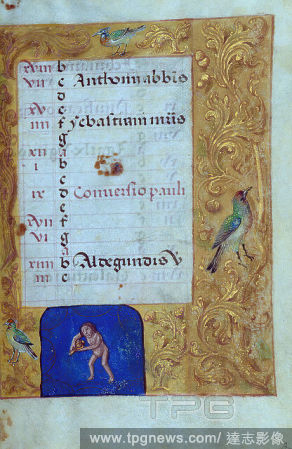 xviii b
vii c Anthonii abb̄is
d
xv e
iiii f Sebastiani m̄is
g
xii a
i b
c
ix d Conversio pauli
e
xvii f
vi g
a
xiiii b Aldegundis v
iii c
TPG
www.tpgnews.com / 達志影像